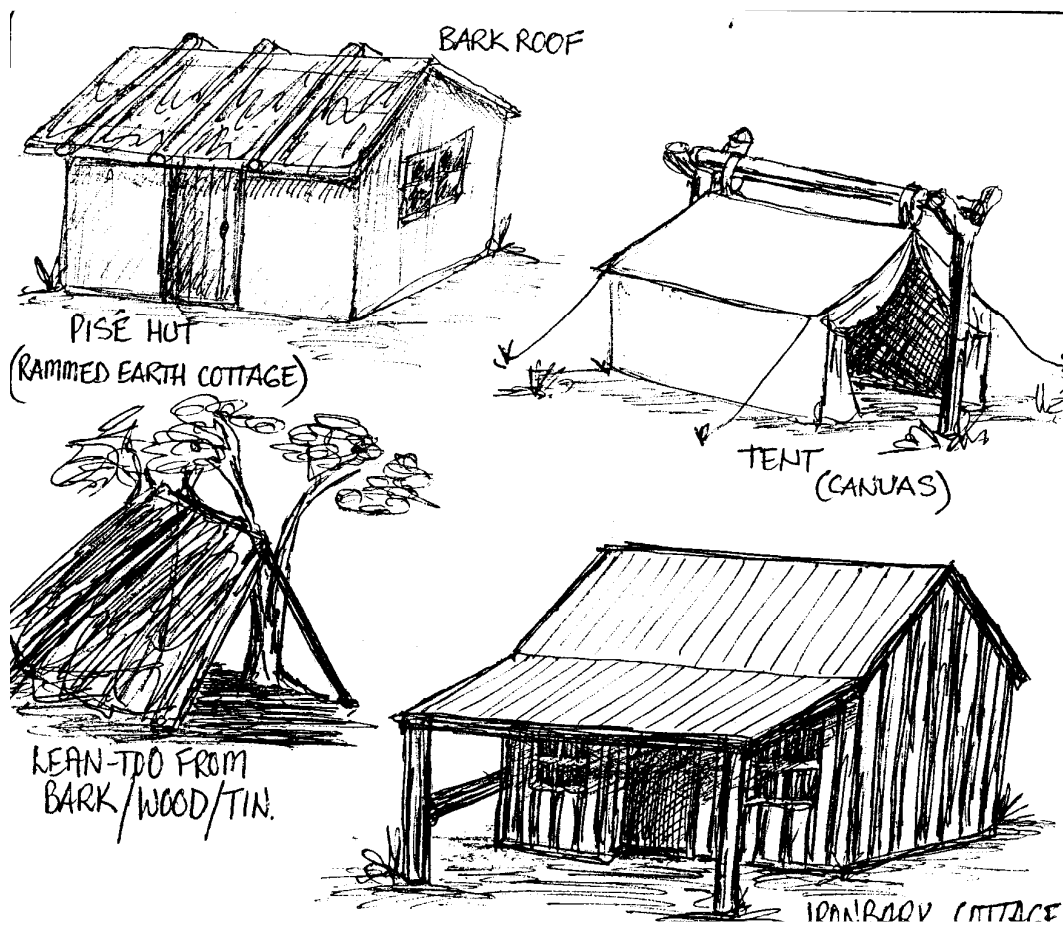 BARK ROOF
PISÉ HUT
(RAMMED EARTH COTTAGE)
TENT
(CANVAS)
LEAN-TOO FROM
BARK/WOOD/TIN.
IRONBARK COTTAGE